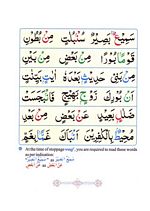 سَمِيْعٌۢ بَصِيْرٌ سُنْۢبُلٰتٍ مِنْۢ بُطُوْنِ
قَوْمًاۢ بُوْرًا مِنْۢ بَعْضِ مِنْۢ بَيْنِ
مِنْۢ بَنِيْ حَدِيْثٍۢ بَعْدَهٗ اٰيٰتٍۢ بَيِّنٰتٍ
اَنْۢ بُوْرِكَ زَوْجٍۢ بَهِيْجٍ فَانْۢبَجَسَتْ
ضَلٰلٍۢ بَعِيْدٍ عَنْۢ بَعْضٍ مِنْۢ بَعْدِ
مُحِيْطٌۢ بِالْكٰفِرِيْنَ اَنْۢبَاَكَ غَمًّاۢ بِغَمٍّ
At the time of stoppage waqf, you are required to read these words
as per indication: